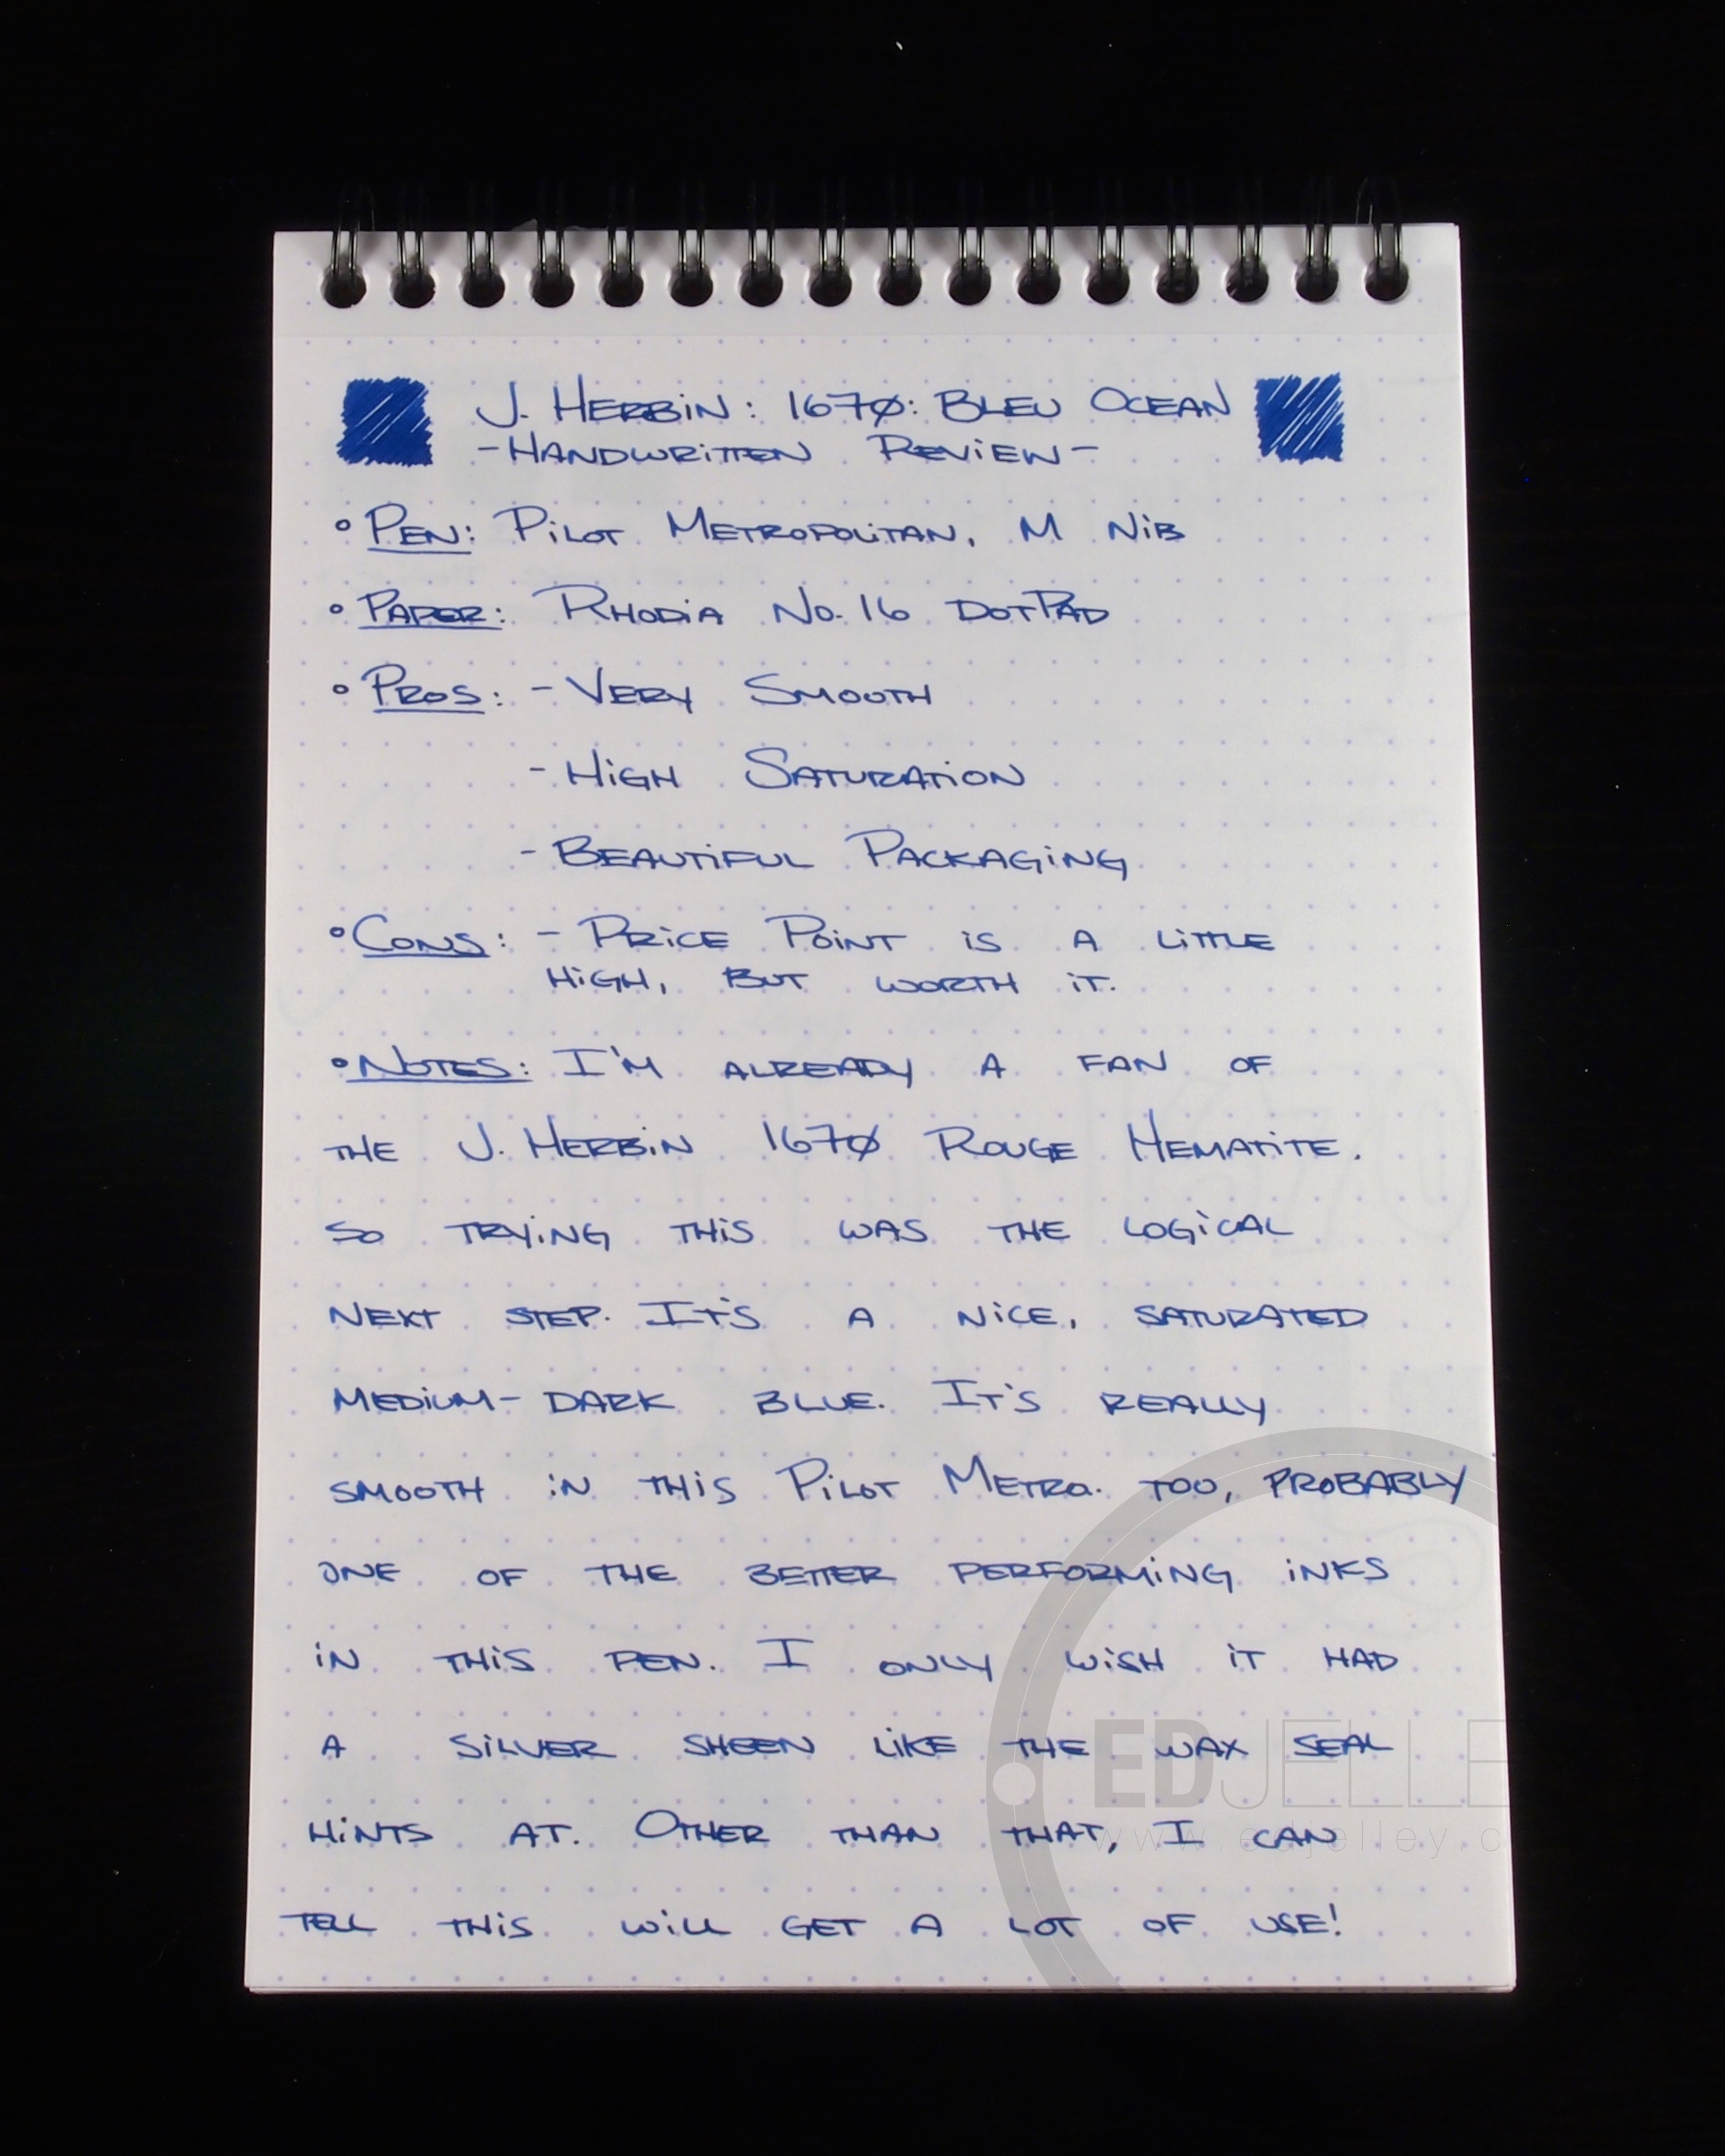 J. HERBIN: 1670: BLEU OCEAN
-HANDWRITTEN REVIEW-
• PEN: PILOT METROPOLITAN, M NIB
• PAPER: RHODIA NO. 16 DOTPAD
• PROS: - VERY SMOOTH
- HIGH SATURATION
- BEAUTIFUL PACKAGING
• CONS: - PRICE POINT IS A LITTLE
HIGH, BUT WORTH IT.
• NOTES: I'M ALREADY A FAN OF
THE J. HERBIN 1670 ROUGE HEMATITE.
SO TRYING THIS WAS THE LOGICAL
NEXT STEP. IT'S A NICE, SATURATED
MEDIUM-DARK BLUE. IT'S REALLY
SMOOTH IN THIS PILOT METRO. TOO, PROBABLY
ONE OF THE BETTER PERFORMING INKS
IN THIS PEN. I ONLY WISH IT HAD
A SILVER SHEEN LIKE THE WAX SEAL
HINTS AT. OTHER THAN THAT, I CAN
TELL THIS WILL GET A LOT OF USE!
EDJELLE
www.edjelley.c